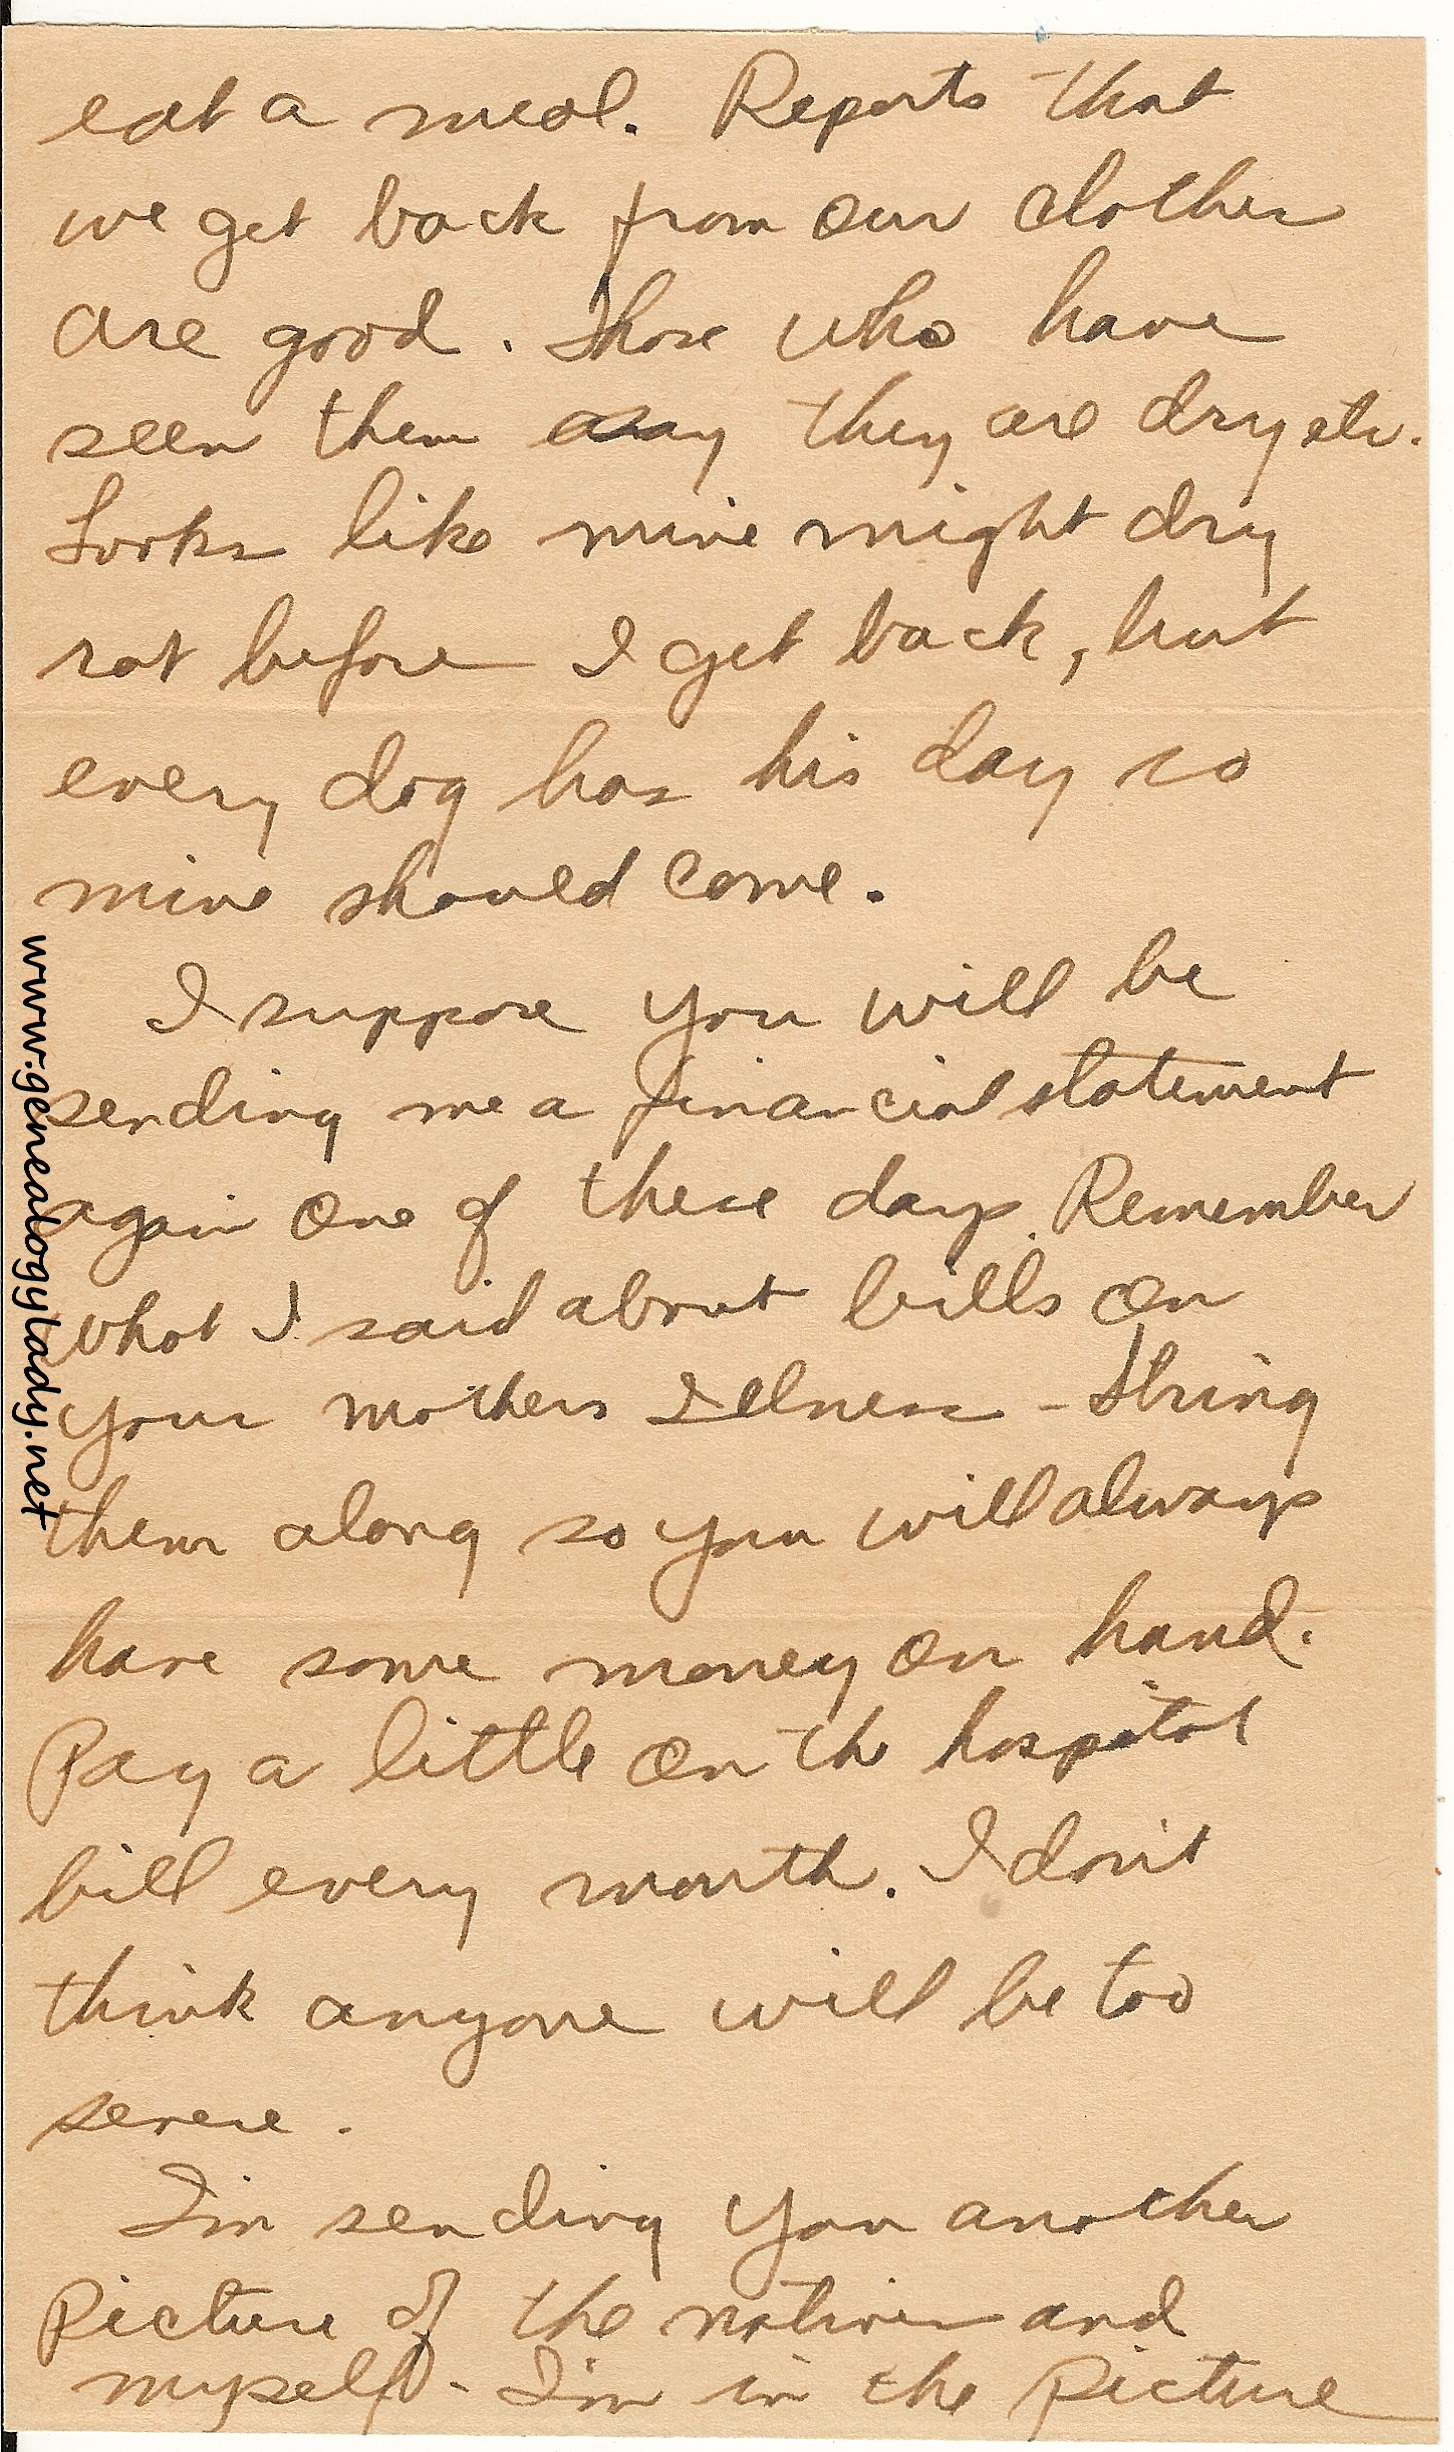 eat a meal. Reports that
we get back from our clothes
are good. Those who have
seen them say they are dry etc.
Looks like mine might dry
rot before I get back, but
every dog has his day so
mine should come.
I suppose you will be
sending me a financial statement
again one of these days. Remember
what I said about bills on
your mothers Illness - String
them along so you will always
have some money on hand.
Pay a little on the hospital
bill every month. I don't
think anyone will be too
severe.
I'm sending you another
picture of the natives and
myself - I'm in the picture
www.genealogylady.net